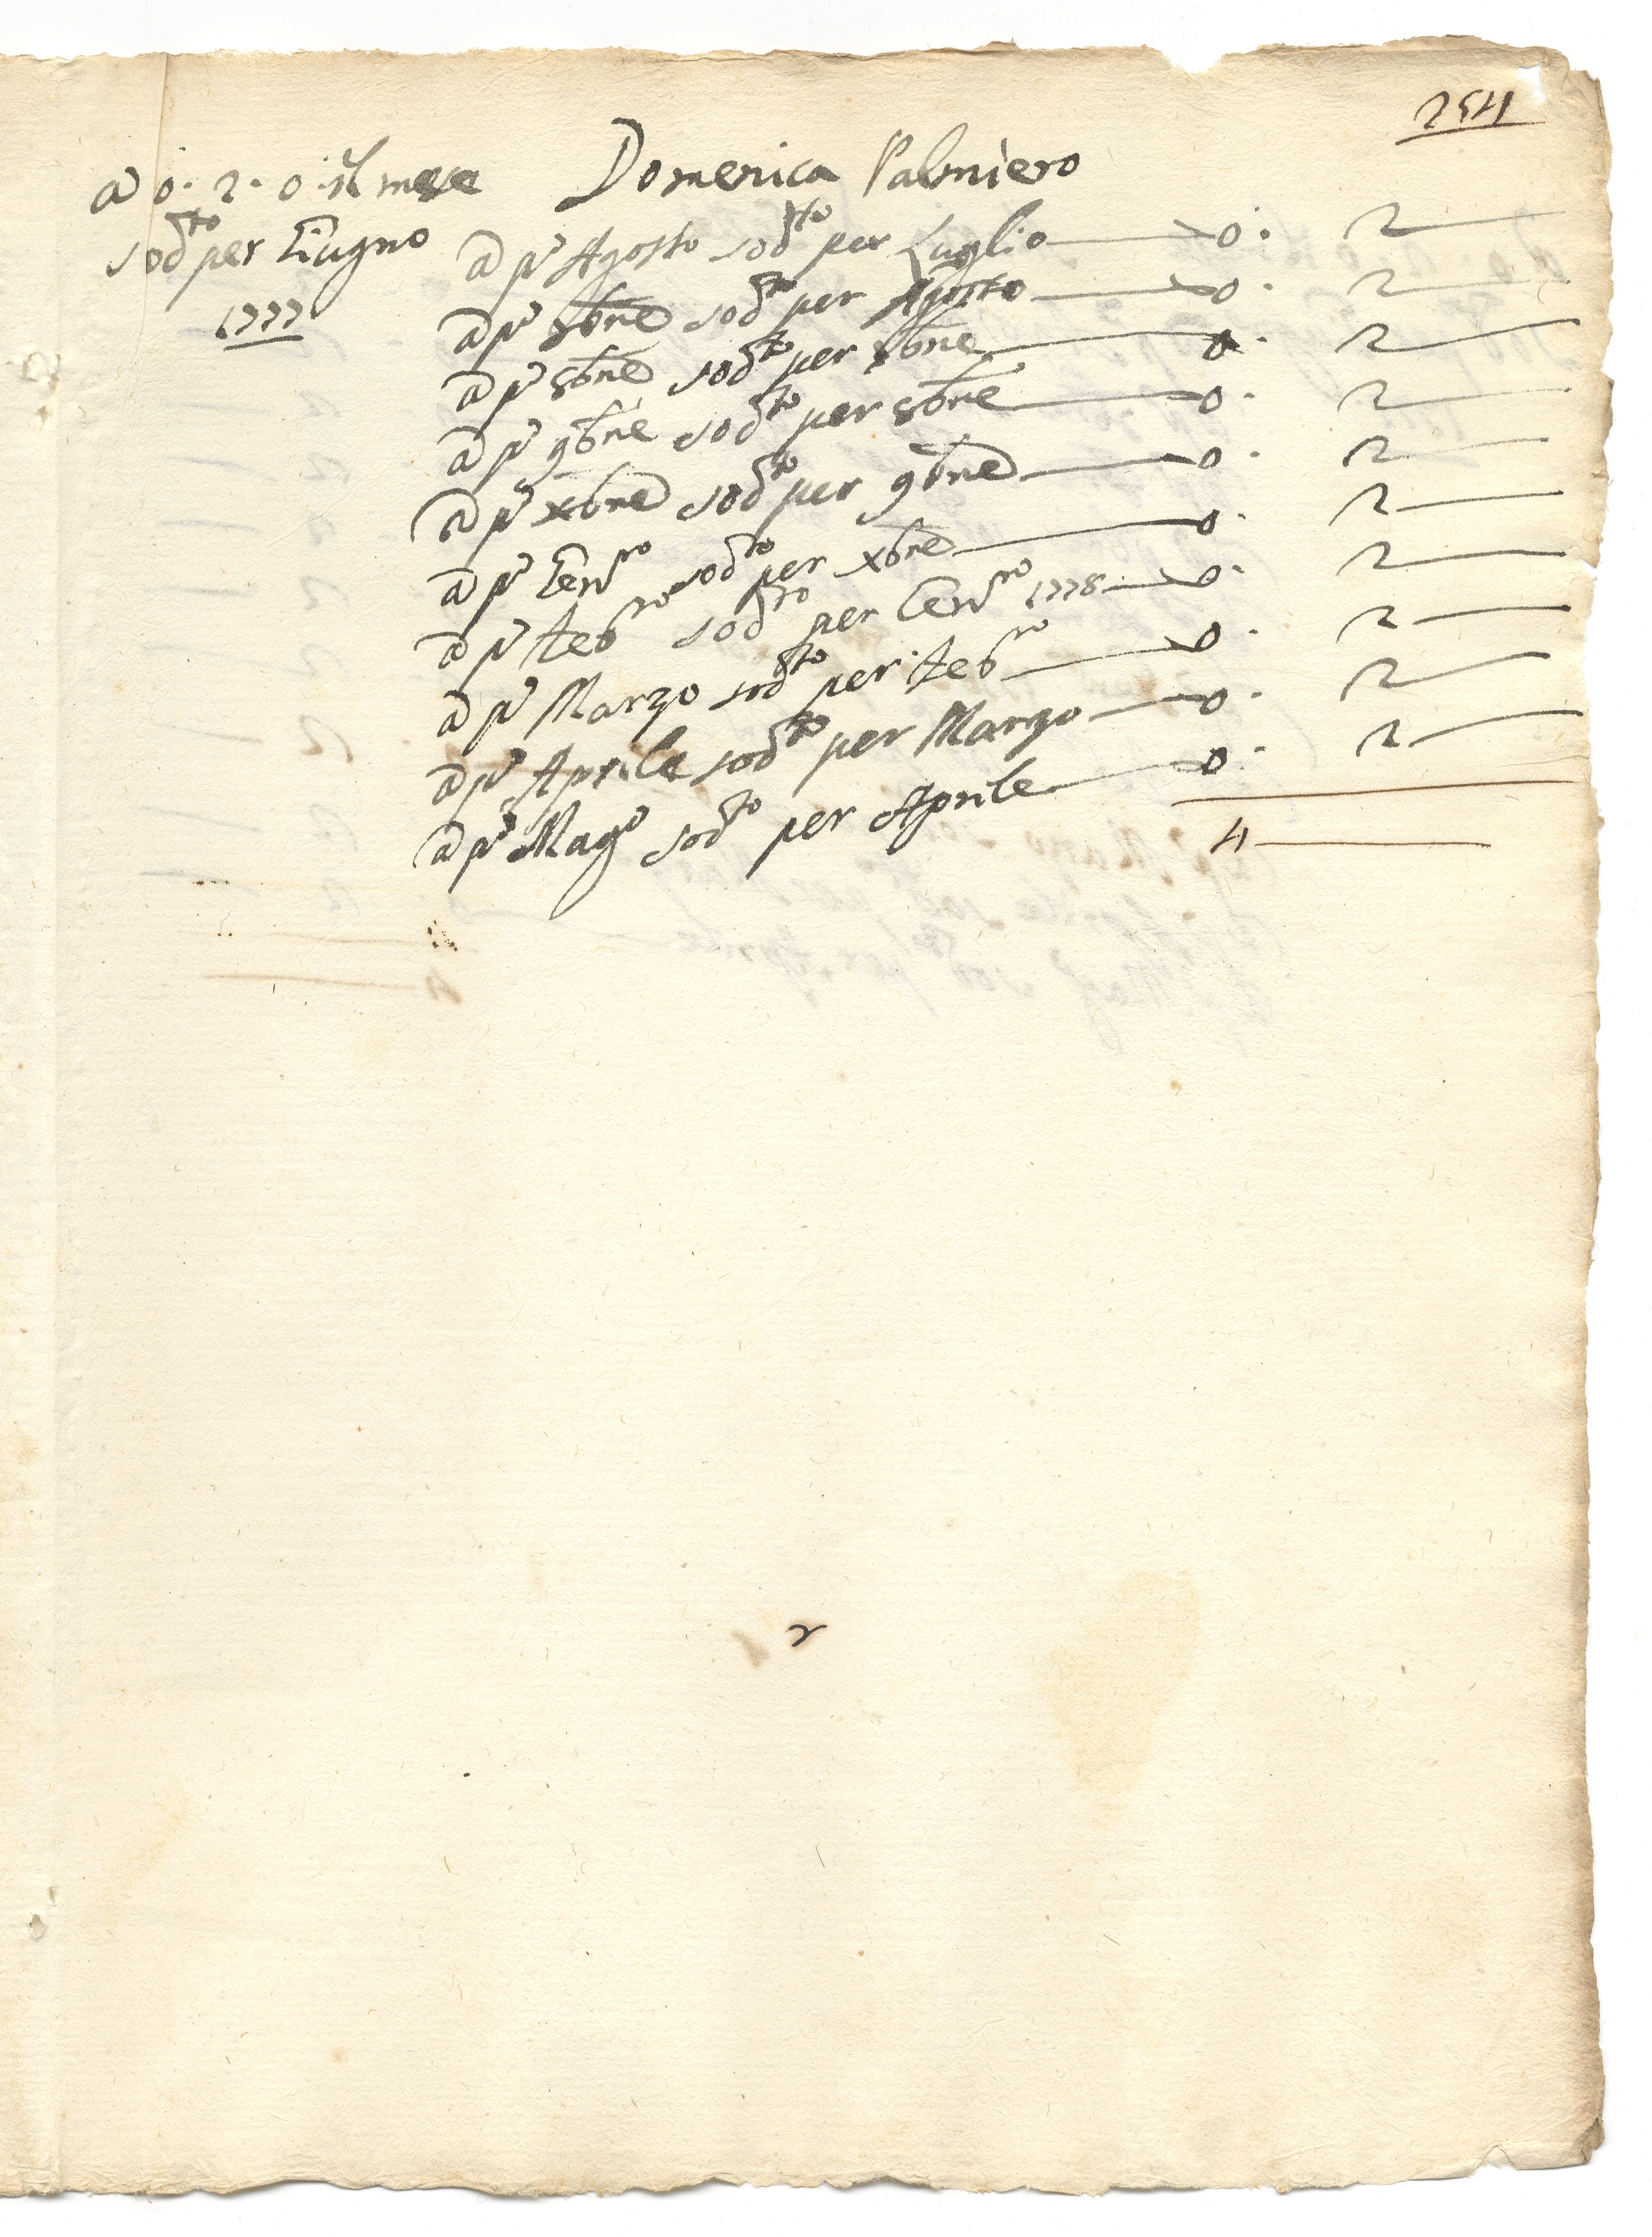 254
a 0. 2. 0. il mese
sodto per Giugno
1777
Domenica Palmiero
a pº Agosto sodto per Luglio 0. 2
a pº 7bre sodto per Agosto 0. 2
a pº 8bre sodto per 7bre 0. 2
a pº 9bre sodto per 8bre 0. 2
a pº xbre sodto per 9bre 0. 2
a pº Genro sodto per xbre 0. 2
a pº Febro sodto per Genro 1778 0. 2
a pº Marzo sodto per Febro 0. 2
a pº Aprile sodto per Marzo 0. 2
a pº Magº sodto per Aprile 0. 2
4